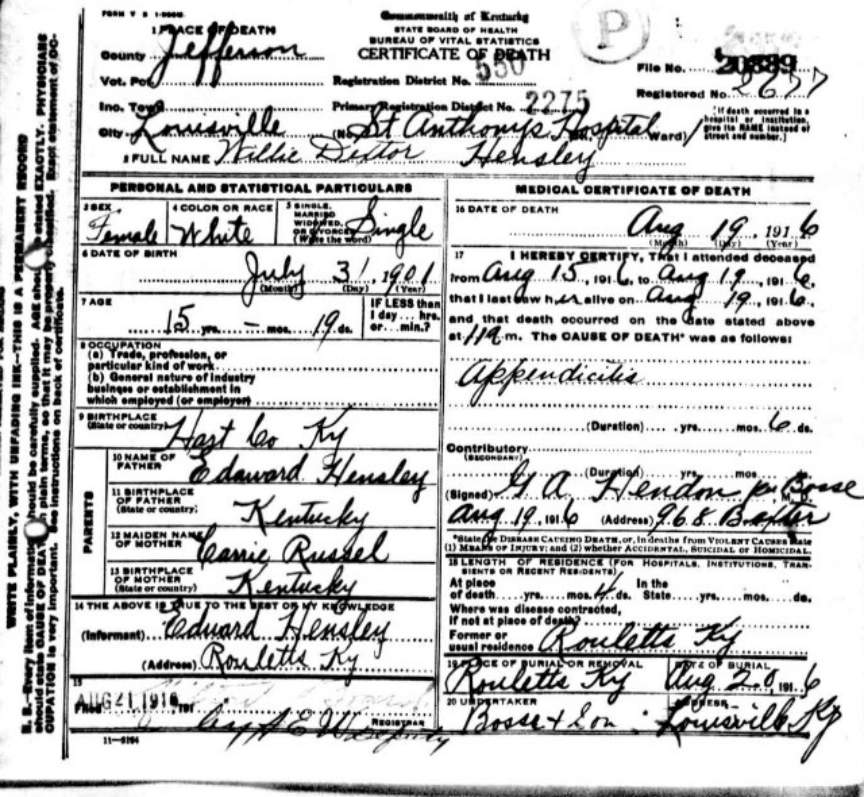 FORM V S 1-
Commonwealth of Kentucky
STATE BOARD OF HEALTH
BUREAU OF VITAL STATISTICS
CERTIFICATE OF DEATH
P
1 PLACE OF DEATH
County Jefferson
Vot. Pct
Inc. Town
City Louisville
Registration District No. 550
Primary Registration District No. 2275
(No. St Anthonys Hospital Ward)
File No. 20889
Registered No. 2677
[If death occurred in a
hospital or institution,
give its NAME instead of
street and number.]
2 FULL NAME Willie Dixtor Hensley
PERSONAL AND STATISTICAL PARTICULARS
3 SEX
Female
4 COLOR OR RACE
White
5 SINGLE,
MARRIED
WIDOWED,
OR DIVORCED
(Write the word)
Single
6 DATE OF BIRTH
July 31, 1901
(Month) (Day) (Year)
7 AGE
15 yrs. - mos. 19 ds.
IF LESS than
1 day ... hrs.
or ... min.?
8 OCCUPATION
(a) Trade, profession, or
particular kind of work
(b) General nature of industry
business or establishment in
which employed (or employer)
9 BIRTHPLACE
(State or country) Hart Co Ky
PARENTS
10 NAME OF
FATHER
Edaward Hensley
11 BIRTHPLACE
OF FATHER
(State or country)
Kentucky
12 MAIDEN NAME
OF MOTHER
Carrie Russel
13 BIRTHPLACE
OF MOTHER
(State or country)
Kentucky
14 THE ABOVE IS TRUE TO THE BEST OF MY KNOWLEDGE
(Informant) Eduard Hensley
(Address) Rouletts Ky
15
AUG 21 1916, 191
REGISTRAR
Deputy
11-5184
MEDICAL CERTIFICATE OF DEATH
16 DATE OF DEATH
Aug 19, 1916
(Month) (Day) (Year)
17 I HEREBY CERTIFY, That I attended deceased
from Aug 15, 1916, to Aug 19, 1916,
that I last saw her alive on Aug 19, 1916,
and that death occurred on the date stated above
at 11 a m. The CAUSE OF DEATH* was as follows:
Appendicitis
(Duration) yrs. mos. 6 ds.
Contributory
(SECONDARY)
(Duration) yrs. mos.
(Signed) G A Hendon pr Bosse
Aug 19, 1916 (Address) 968 Baxter
*State the DISEASE CAUSING DEATH, or, in deaths from VIOLENT CAUSES state
(1) MEANS OF INJURY; and (2) whether ACCIDENTAL, SUICIDAL OR HOMICIDAL.
18 LENGTH OF RESIDENCE (FOR HOSPITALS, INSTITUTIONS, TRAN-
SIENTS OR RECENT RESIDENTS)
At place
of death yrs. mos. 4 ds.
In the
State yrs. mos. ds.
Where was disease contracted,
if not at place of death?
Former or
usual residence Rouletts Ky
19 PLACE OF BURIAL OR REMOVAL
Rouletts Ky
DATE OF BURIAL
Aug 20, 1916
20 UNDERTAKER
Bosse & Son
ADDRESS
Louisville Ky
WRITE PLAINLY, WITH UNFADING INK—THIS IS A PERMANENT RECORD
N. B.—Every item of information should be carefully supplied. AGE should be stated EXACTLY. PHYSICIANS
should state CAUSE OF DEATH in plain terms, so that it may be properly classified. Exact statement of OC-
CUPATION is very important. See instructions on back of certificate.